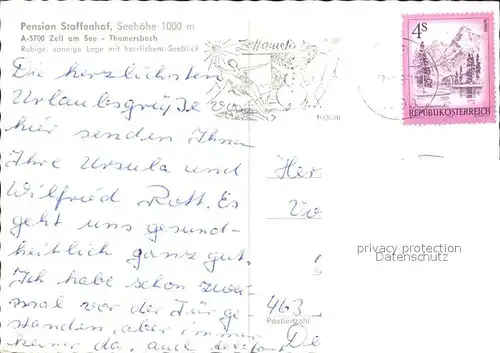 Pension Stoffenhof, Seehöhe 1000 m
A-5700 Zell am See - Thumersbach
Ruhige, sonnige Lage mit herrlichem Seeblick
4S
REPUBLIK ÖSTERREICH
Die herzlichsten
Urlaubsgrüße von
hier senden Ihnen
Ihre Ursula und
Wilfried Rott. Es
geht uns gesund-
heitlich ganz gut.
Ich habe schon zwei-
mal vor der Tür ge
standen, aber immer
keiner da, auch telefon
Her
Vo
463
Postleitzahl
De
privacy protection
Datenschutz